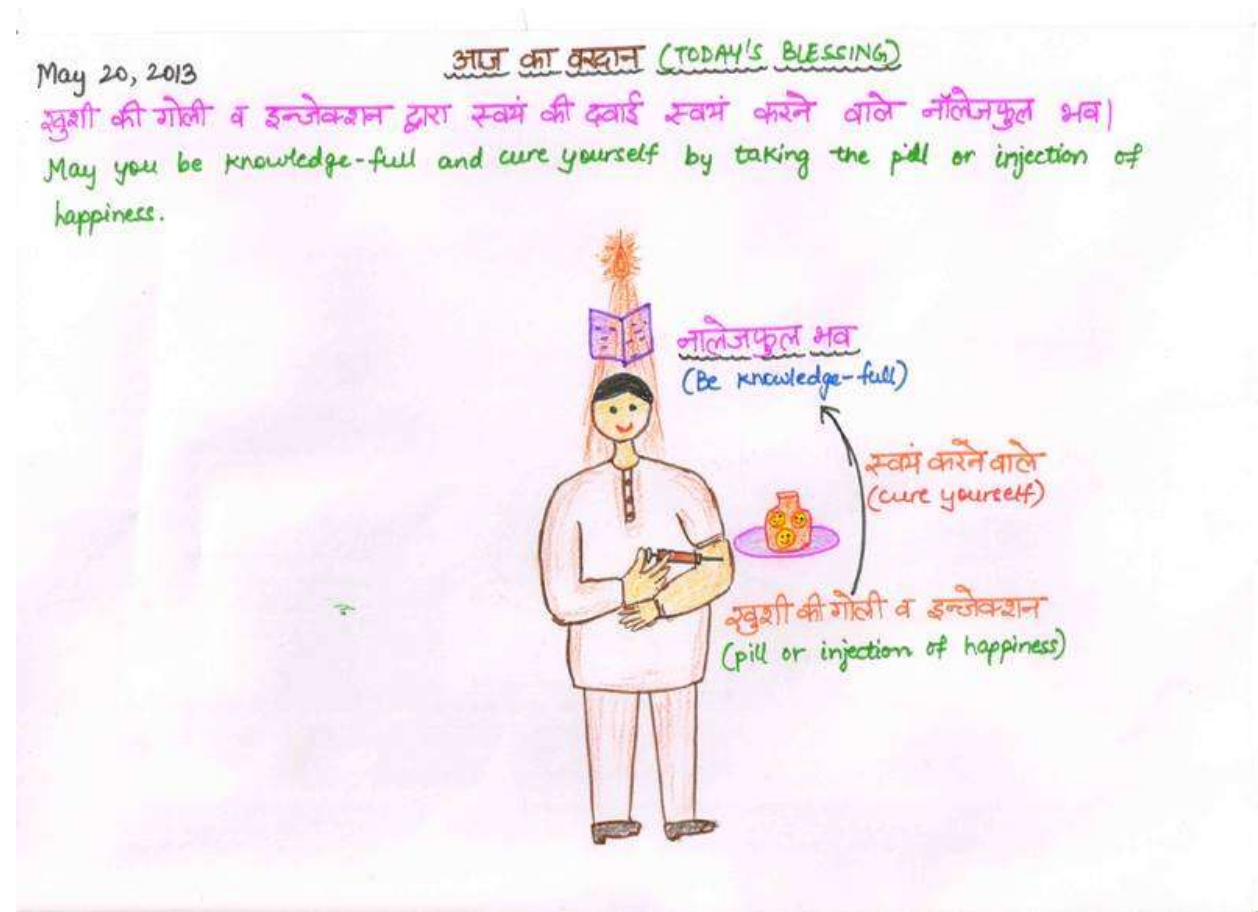 आज का वरदान (TODAY'S BLESSING)
May 20, 2013
खुशी की गोली व इन्जेक्शन द्वारा स्वयं की दवाई स्वयं करने वाले नॉलेजफुल भव|
May you be knowledge-full and cure yourself by taking the pill or injection of
happiness.
नालेजफुल भव
(Be knowledge-full)
स्वयं करने वाले
(cure yourself)
खुशी की गोली व इन्जेक्शन
(pill or injection of happiness)